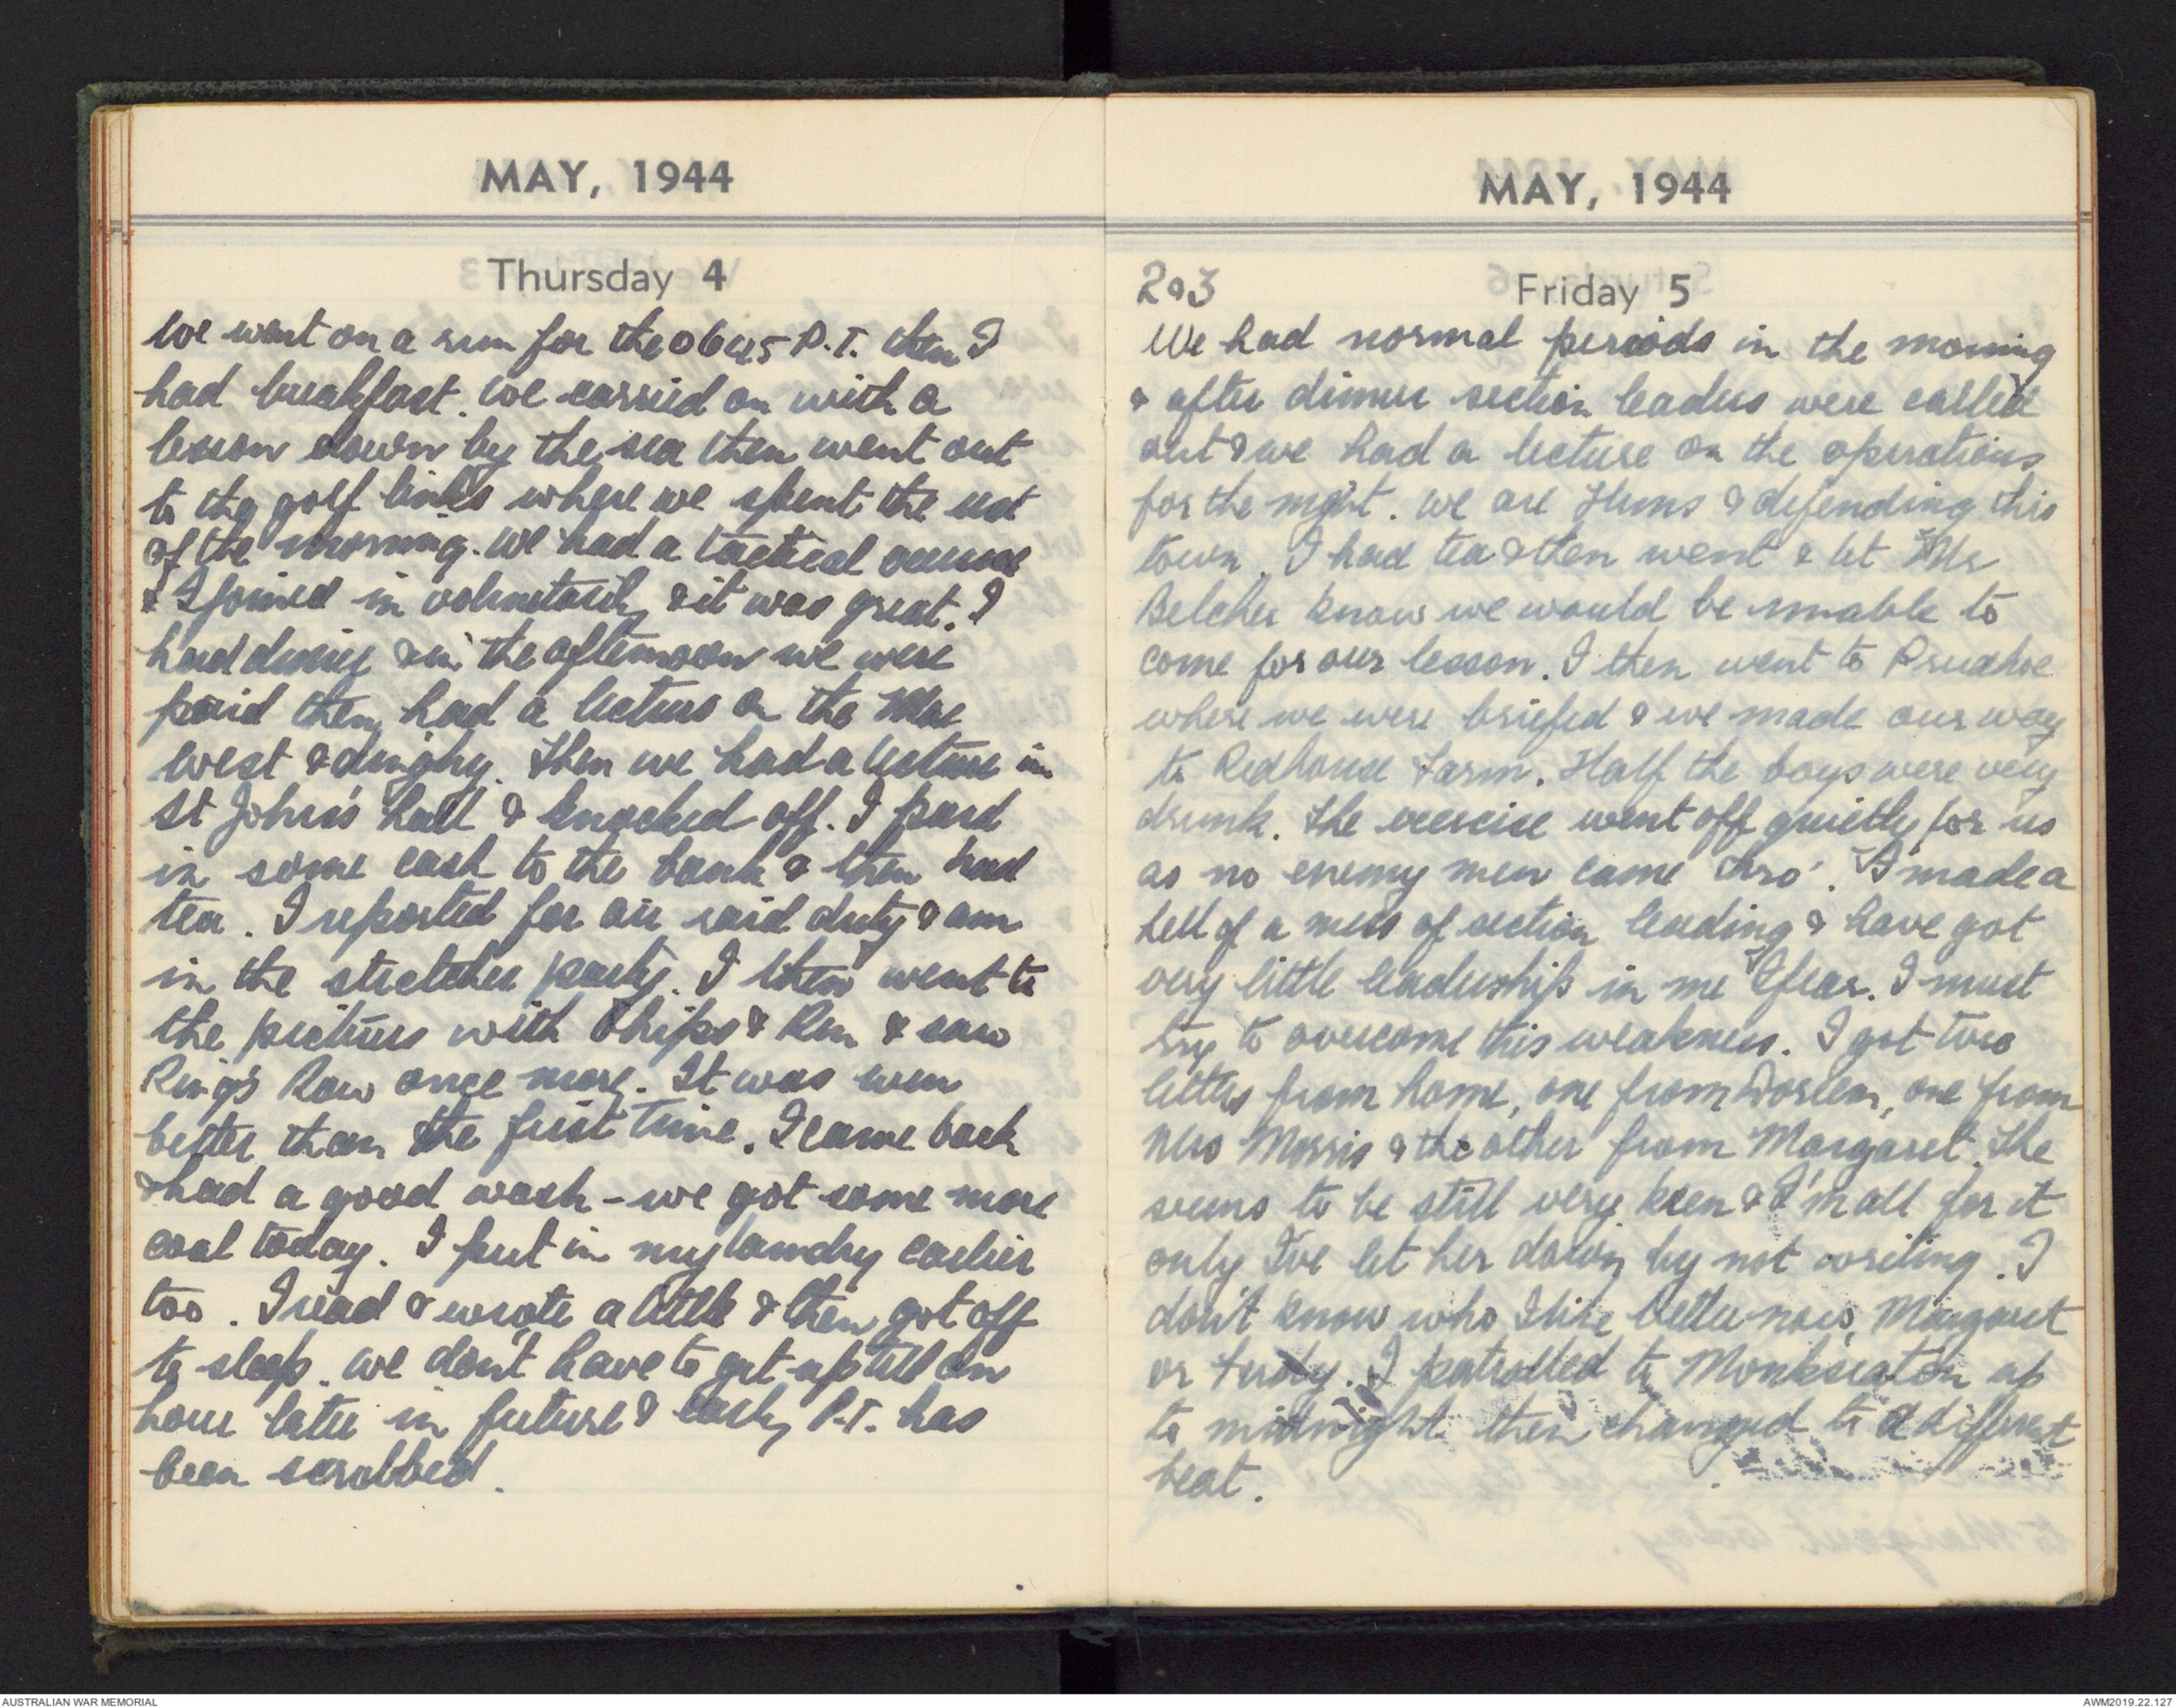 MAY, 1944
Thursday 4
We went on a run for the 0645 P.T. then I
had breakfast. We carried on with a
lesson down by the sea then went out
to the golf links where we spent the rest
of the morning. We had a tactical exercise
& I joined in voluntarily & it was great. I
had dinner & in the afternoon we were
paid then had a lecture on the Mae
West & dinghy. Then we had a lecture in
St John's hall & knocked off. I paid
in some cash to the bank & then had
tea. I reported for air raid duty & am
in the stretcher party. I then went to
the pictures with Chips & Ken & saw
King's Row once more. It was even
better than the first time. I came back
& had a good wash - we got some more
coal today. I put in my laundry earlier
too. I read & wrote a little & then got off
to sleep. We don't have to get up till an
hour later in future & early P.T. has
been scrubbed.
MAY, 1944
203
Friday 5
We had normal periods in the morning
& after dinner section leaders were called
out & we had a lecture on the operations
for the night. We are Huns & defending this
town. I had tea & then went & let Mr
Belcher know we would be unable to
come for our lesson. I then went to Prudhoe
where we were briefed & we made our way
to Redhouse Farm. Half the boys were very
drunk. The exercise went off quietly for us
as no enemy men came thro'. I made a
hell of a mess of section leading & have got
very little leadership in me I fear. I must
try to overcome this weakness. I got two
letters from home, one from Doreen, one from
Mrs Morris & the other from Margaret. She
seems to be still very keen & I'm all for it
only I've let her down by not writing. I
don't know who I like better now, Margaret
or Trudy. I patrolled to Monkseaton up
to midnight then changed to a different
beat.
AUSTRALIAN WAR MEMORIAL
AWM2019.22.127